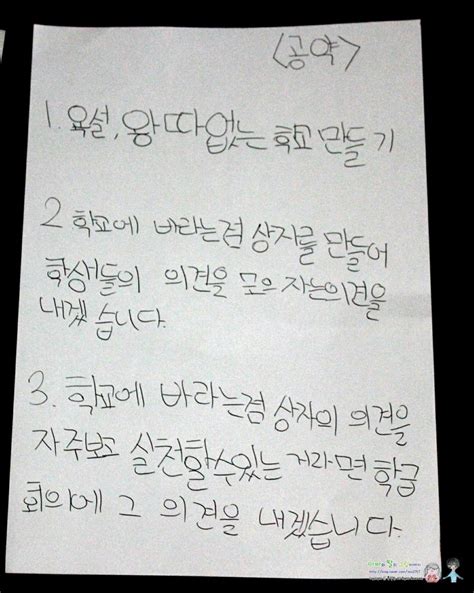 <공약>
1. 욕설, 왕따없는 학교 만들기
2 학교에 바라는점 상자를 만들어
학생들의 의견을 모으자는의견을
내겠습니다.
3. 학교에 바라는점 상자의 의견을
자주보고 실천할수있는 거라면 학급
회의에 그 의견을 내겠습니다.